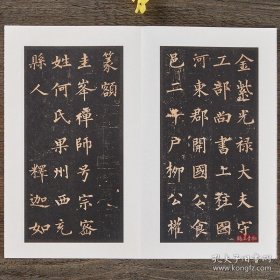 金紫光禄大夫守
工部尚書上柱國
河東郡開國公食
邑二千戶柳公權
篆額
圭峯禪師号宗密
姓何氏果州西充
縣人釋迦如